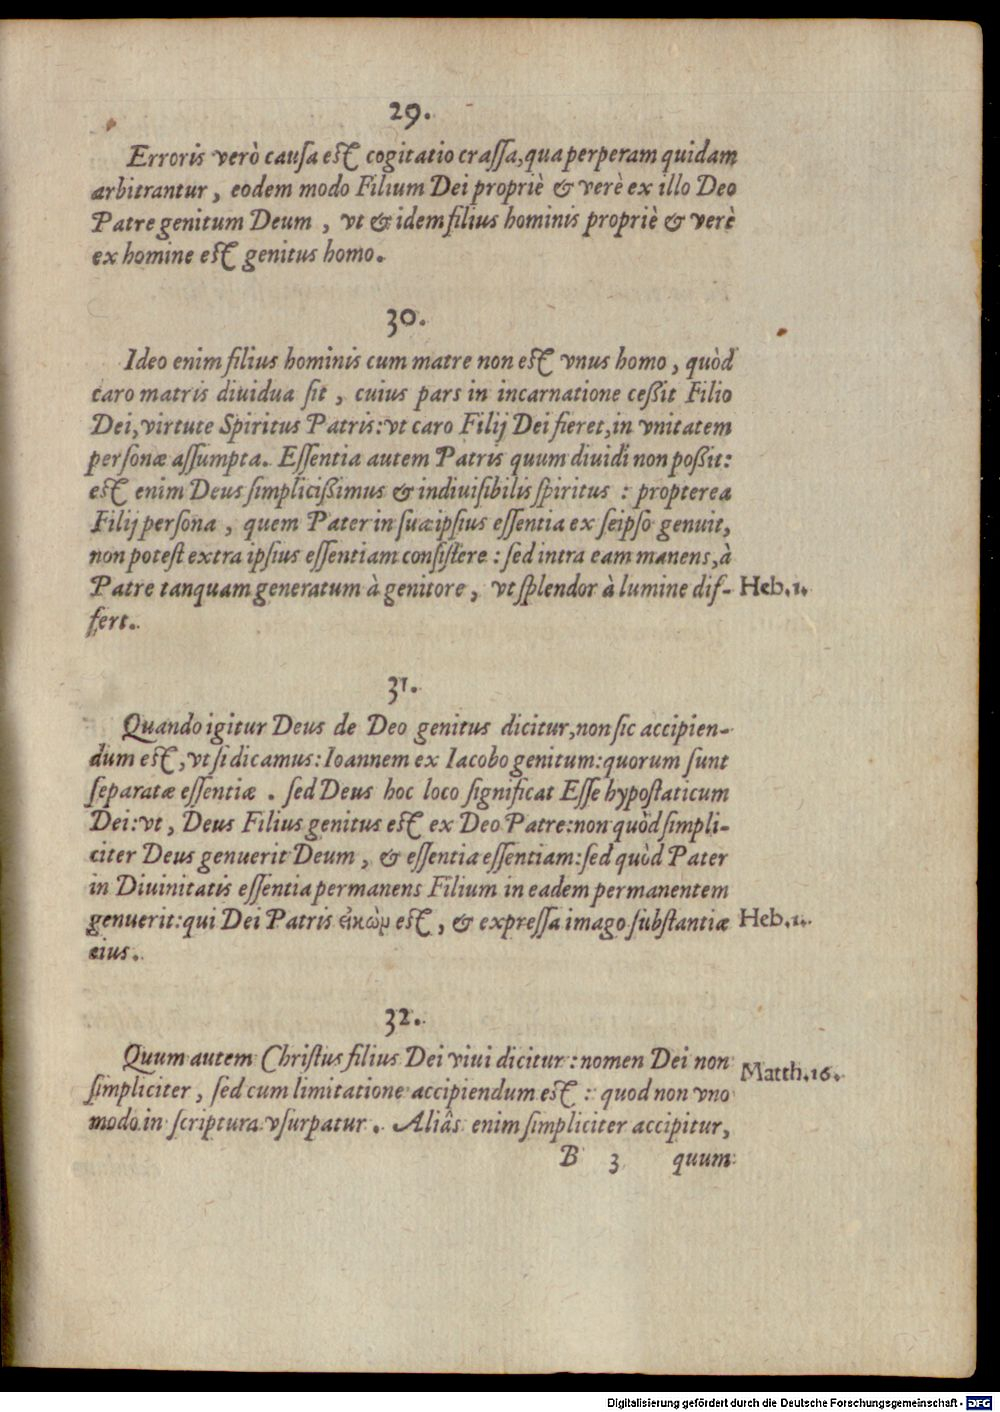 29.
Erroris verò causa est cogitatio crassa, qua perperam quidam
arbitrantur, eodem modo Filium Dei propriè & verè ex illo Deo
Patre genitum Deum, vt & idem filius hominis propriè & verè
ex homine est genitus homo.
30.
Ideo enim filius hominis cum matre non est vnus homo, quòd
caro matris diuidua sit, cuius pars in incarnatione ceßit Filio
Dei, virtute Spiritus Patris: vt caro Filij Dei fieret, in vnitatem
personæ assumpta. Essentia autem Patris quum diuidi non poßit:
est enim Deus simplicißimus & indiuisibilis spiritus: propterea
Filij persona, quem Pater in suaipsius essentia ex seipso genuit,
non potest extra ipsius essentiam consistere: sed intra eam manens, à
Patre tanquam generatum à genitore, vt splendor à lumine dif- Heb.1.
fert.
31.
Quando igitur Deus de Deo genitus dicitur, non sic accipien-
dum est, vt si dicamus: Ioannem ex Iacobo genitum: quorum sunt
separatæ essentiæ. sed Deus hoc loco significat Esse hypostaticum
Dei: vt, Deus Filius genitus est ex Deo Patre: non quòd simpli-
citer Deus genuerit Deum, & essentia essentiam: sed quòd Pater
in Diuinitatis essentia permanens Filium in eadem permanentem
genuerit: qui Dei Patris εἰκὼν est, & expressa imago substantiæ Heb.1.
eius.
32.
Quum autem Christus filius Dei viui dicitur: nomen Dei non
Matth.16.
simpliciter, sed cum limitatione accipiendum est: quod non vno
modo in scriptura vsurpatur. Aliâs enim simpliciter accipitur,
B 3 quum
Digitalisierung gefördert durch die Deutsche Forschungsgemeinschaft - DFG